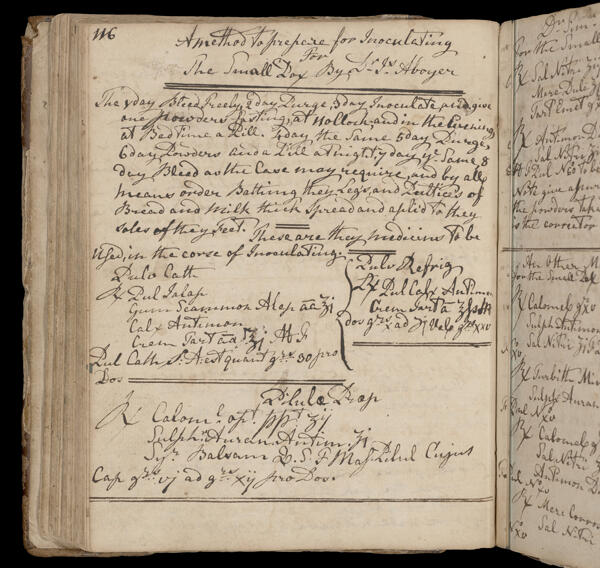 116
A method to prepare for Inoculating
For
The Small Pox By Dr. Js. Aboyer
The 1 day Bleed freely, 2 day Purge, 3 day Inoculate and give
one powders fasting, at 11 olloch, and in the Evening
at Bed Time a Pill. 4 day the Same 5 day Purge,
6 day Powders and a Pill at night, 7 day ye Same 8
day Bleed as the Case may require, and by all
means order Bathing they Legs and Pultics of
Bread and Milk thick Spread and aplid to they
soles of they Feet. These are they medicins to be
Used, in the corse of Inoculating.
Pulv Cath
℞ Pul Jalap
Gum Scammon Alep aa ʒj
Calx Antimon
Crem Tart aa ʒj
Pul Cath quant grs 30 pro
Dos
Pulv Refrig
℞ Pul Calx Antimon
Crem Tart a
Dos grs x ad ʒj Vele grs xxv
Pilulæ Diap
℞ Calom opt ppt ʒij
Sulph Auran Antim ʒj
Syr Balsam Q. S. F Mas Pilul Cujus
Cap grs vj ad grs xij pro Dos.
for the Small
℞ Sal Nitri ʒij
Merc Dulc
Tart Emet
℞ Antimon
Sal Nitri
Note give
the powders
is the corrector
An Other
for the Small Pox
℞ Calomel
Sulph Antimon
Sal Nitri
℞ Turbith Min
Sulph Auran
℞ Calomel
Sal Nitri
Antimon
℞ Merc Corros
Sal Nitri